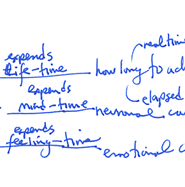 realtime
expends
life-time how long to ad
expends elapsed
mind-time neuronal ca
expends
feeling-time emotional c